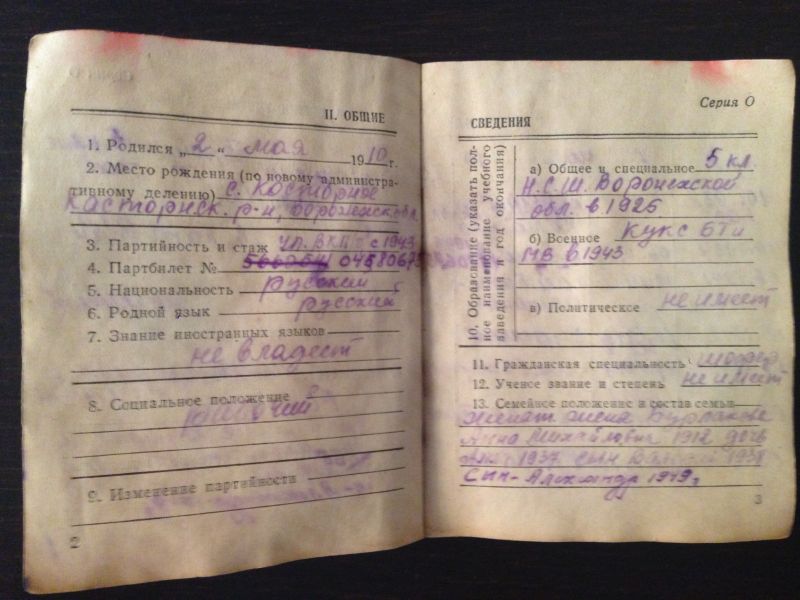 II. ОБЩИЕ
1. Родился „2“ мая 1910 г.
2. Место рождения (по новому администра-
тивному делению) с. Касторное
Касторнск. р-н, Воронежск обл.
3. Партийность и стаж чл. ВКП с 1943
4. Партбилет № 04580675
5. Национальность русский
6. Родной язык русский
7. Знание иностранных языков
не владеет
8. Социальное положение
рабочий
9. Изменение партийности
2
Серия О
СВЕДЕНИЯ
10. Образование (указать пол-
ное наименование учебного
заведения и год окончания)
а) Общее и специальное 5 кл.
Н.С.Ш. Воронежской
обл. в 1925
б) Военное КУКС БТ и
МВ в 1943
в) Политическое не имеет
11. Гражданская специальность шофер
12. Ученое звание и степень не имеет
13. Семейное положение и состав семьи
женат жена
Анна Михайловна 1912 дочь
1937 сын 1938
Сын - Александр 1949
3